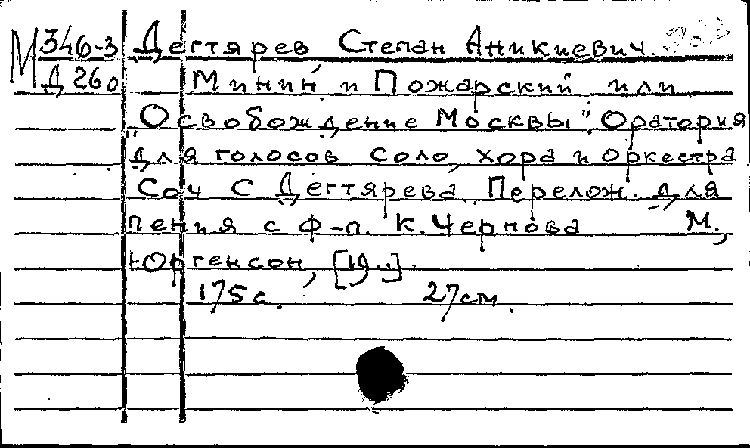 М 346-3 Дегтярев, Степан Аникиевич.
Д 260 Минин и Пожарский или
"Освобождение Москвы". Оратория
для голосов соло, хора и оркестра
Соч С Дегтярева. Перелож. для
пения с ф-п. К. Чернова М.,
Юргенсон, [19..].
175 с. 27 см.